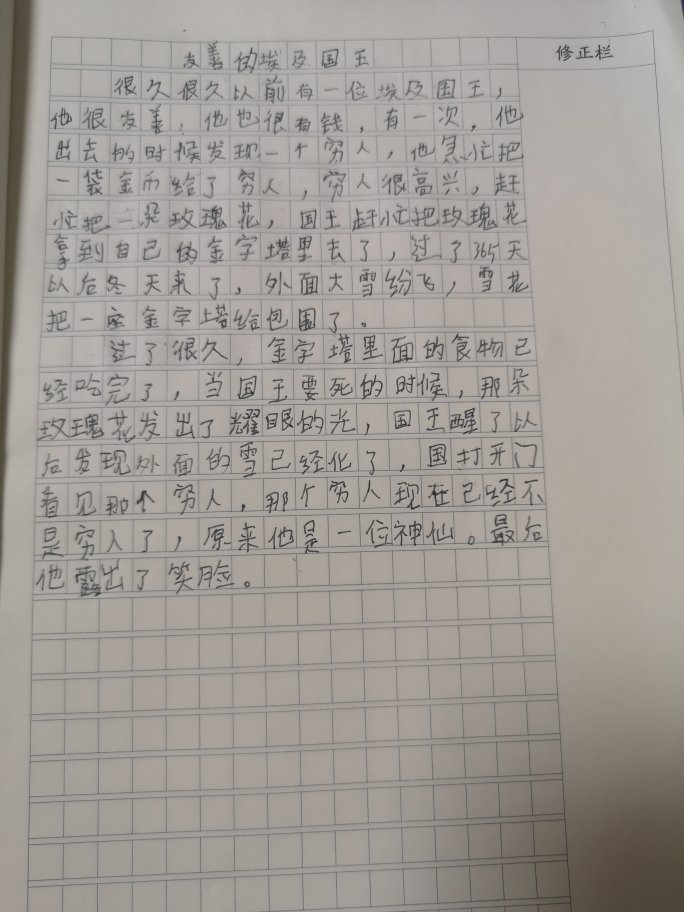 友善的埃及国王
修正栏
很久很久以前有一位埃及国王，
他很友善，他也很有钱，有一次，他
出去的时候发现一个穷人，他急忙把
一袋金币给了穷人，穷人很高兴，赶
忙把一朵玫瑰花，国王赶忙把玫瑰花
拿到自己的金字塔里去了，过了365天
以后冬天来了，外面大雪纷飞，雪花
把一座金字塔给包围了。
过了很久，金字塔里面的食物已
经吃完了，当国王要死的时候，那朵
玫瑰花发出了耀眼的光，国王醒了以
后发现外面的雪已经化了，国打开门
看见那个穷人，那个穷人现在已经不
是穷人了，原来他是一位神仙。最后
他露出了笑脸。